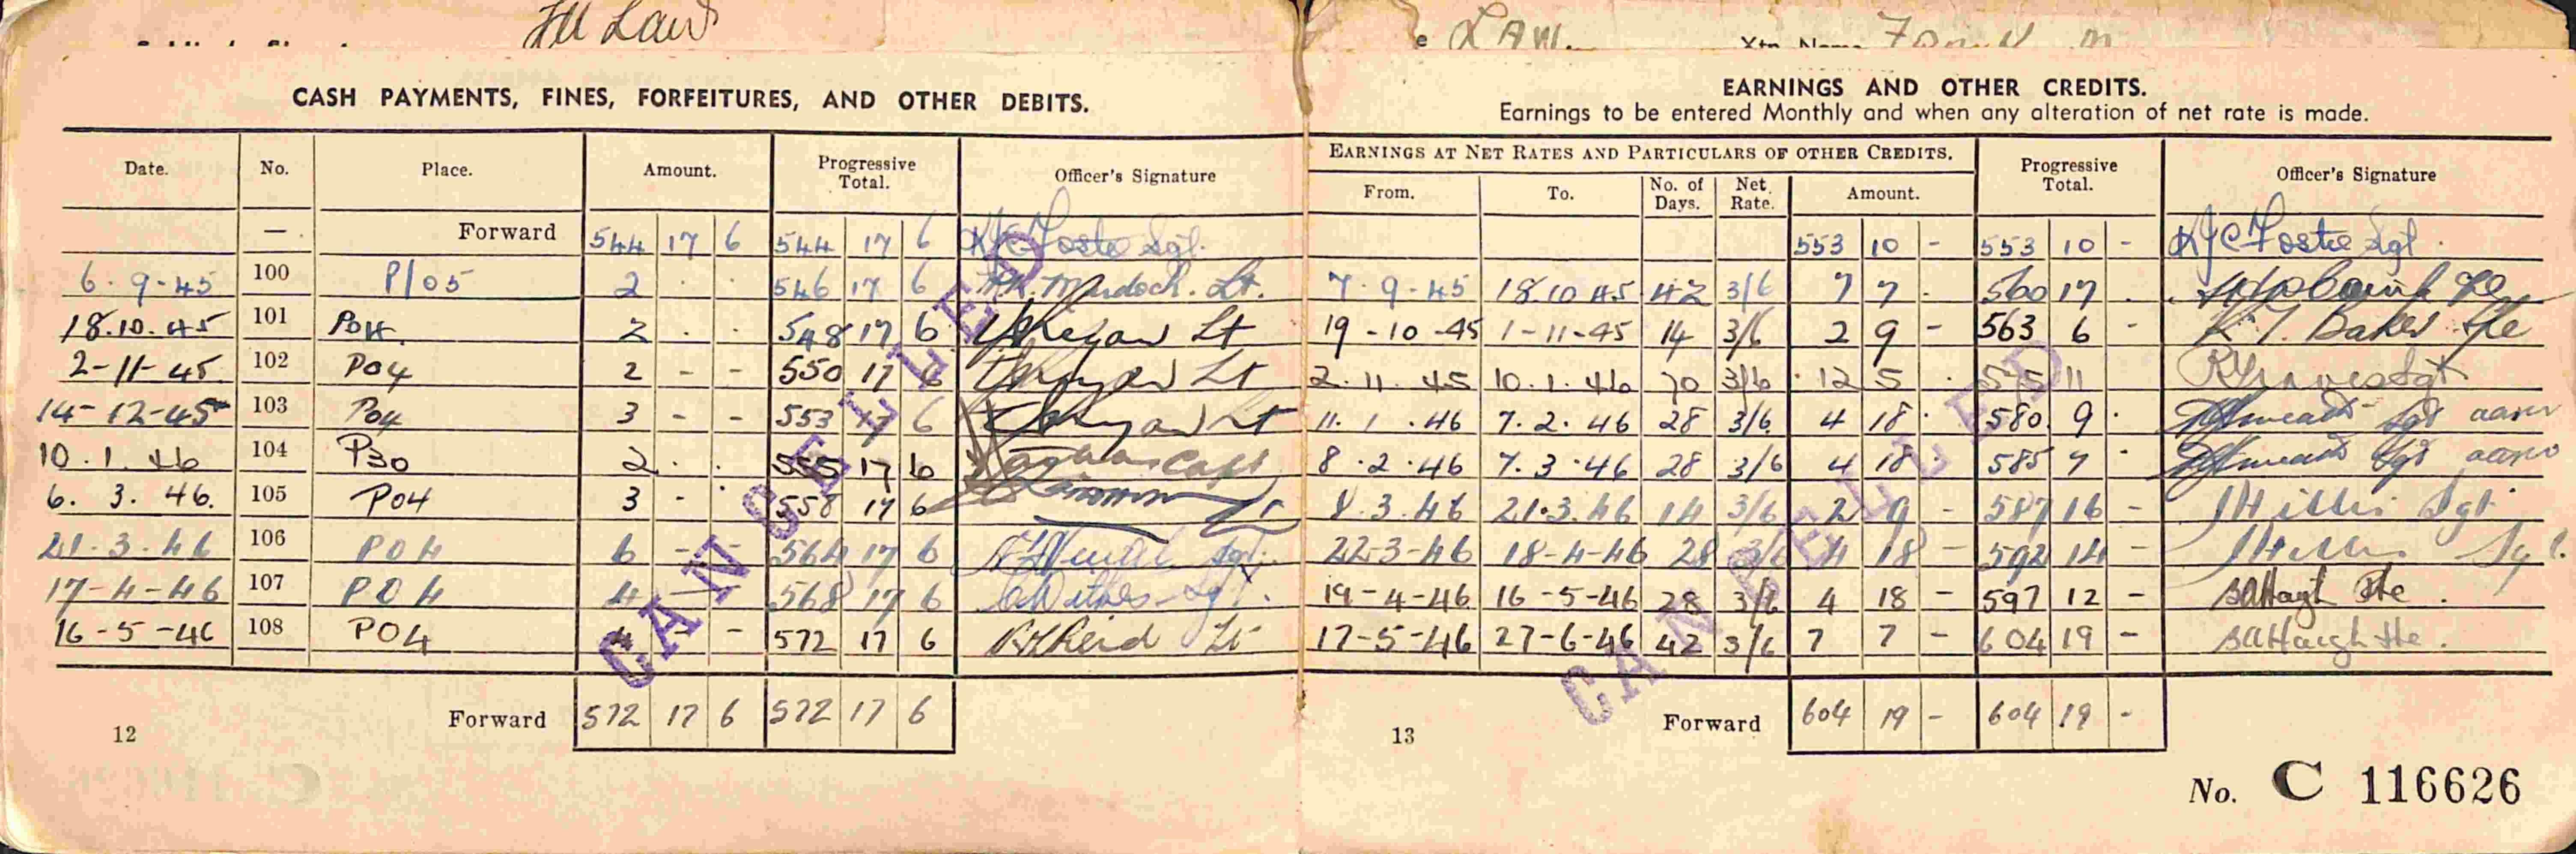 FM Law
LAW.
Xtn. Name
CASH PAYMENTS, FINES, FORFEITURES, AND OTHER DEBITS.
Date. No. Place. Amount. Progressive Total. Officer's Signature
— Forward 544 17 6 544 17 6 KJC Foster Sgt.
6. 9-45 100 P/05 2 . . 546 17 6 Murdoch. Lt.
18.10.45 101 P04. 2 . . 548 17 6 Lt
2-11-45. 102 P04 2 - - 550 17 6 Lt
14-12-45 103 P04 3 - - 553 17 6 Lt
10.1.46 104 P30 2 . . 555 17 6 Capt
6. 3. 46. 105 P04 3 - . 558 17 6 Lt
21-3-46 106 P04 6 - - 564 17 6 Sgt.
17-4-46 107 P04 4 - 568 17 6 Sgt.
16-5-46 108 P04 4 - - 572 17 6 Reid Lt
Forward 572 17 6 572 17 6
12
CANCELLED
EARNINGS AND OTHER CREDITS.
Earnings to be entered Monthly and when any alteration of net rate is made.
EARNINGS AT NET RATES AND PARTICULARS OF OTHER CREDITS. Progressive Total. Officer's Signature
From. To. No. of Days. Net. Rate. Amount.
553 10 - 553 10 - KJC Foster Sgt.
7-9-45 18.10.45 42 3/6 7 7 . 560 17 .
19-10-45 1-11-45 14 3/6 2 9 - 563 6 - Baker Pte
2.11.45 10.1.46 70 3/6 12 5 . 575 11 Sgt
11.1.46 7.2.46 28 3/6 4 18 . 580. 9 . Sgt
8.2.46 7.3.46 28 3/6 4 18 585 7 - Sgt
8.3.46 21.3.46 14 3/6 2 9 - 587 16 - Sgt
22-3-46 18-4-46 28 3/6 4 18 - 592 14 - Sgt.
19-4-46 16-5-46 28 3/6 4 18 - 597 12 - Pte.
17-5-46 27-6-46 42 3/6 7 7 - 604 19 - Pte.
Forward 604 19 - 604 19 -
13
CANCELLED
No. C 116626